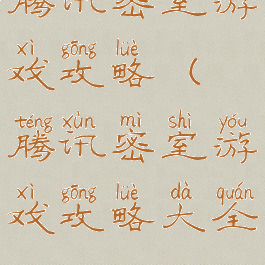 腾讯密室游
xì gōng lüè
戏攻略（
téng xùn mì shì yóu
腾讯密室游
xì gōng lüè dà quán
戏攻略大全